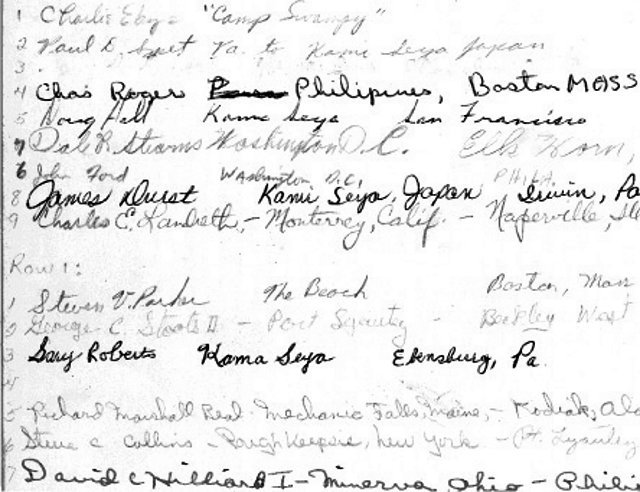 1 Charlie Ebys "Camp Swampy"
2 Paul D. Spet Va. to Kami Seya Japan
3 .
4 Chas Roger Philipines, Boston MASS
5 Doug Hall Kami Seya San Francisco
7 Dale R. Stearns Washington D.C. Elk Horn,
6 John Ford Washington D.C. PHILA.
8 James Durst Kami Seya, Japan Irwin, Pa
9 Charles E. Landreth, - Monterrey, Calif. - Naperville, Ill
Row 1:
1 Steven V. Parker The Beach Boston, Mass
2 George C. Stoots II - Port - Berkley West
3 Gary Roberts Kama Seya Ebensburg, Pa.
4
5 Richard Marshall Beal - Mechanic Falls, Maine, - Kodiak, Ala
6 Steve C Collins - Poughkeepsie, New York - Pt. Lyautey
7 David C Hilliard I - Minerva Ohio - Phili